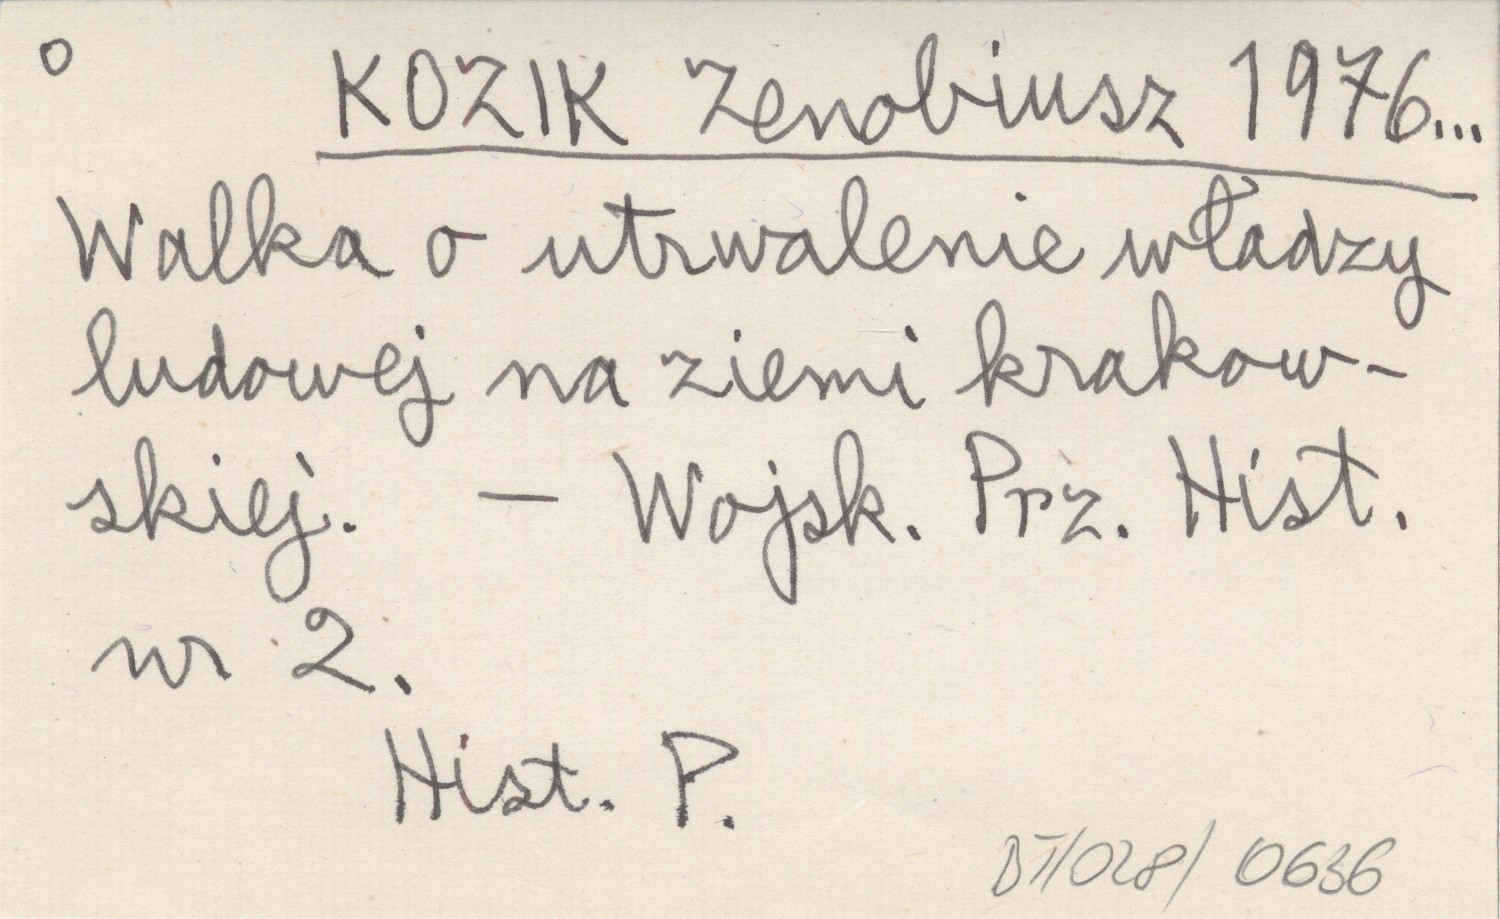 o
KOZIK Zenobiusz 1976...
Walka o utrwalenie władzy
ludowej na ziemi krakow-
skiej. — Wojsk. Prz. Hist.
nr 2.
Hist. P.
BT/028/ 0636